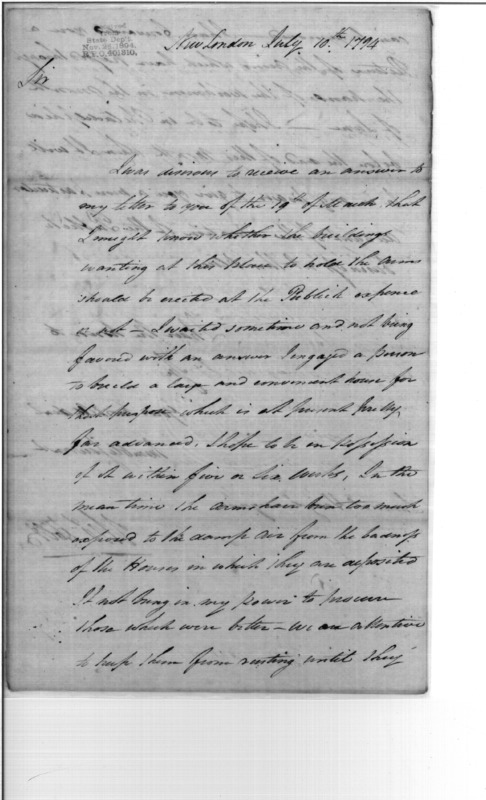 State Dept.
Nov. 26, 1904.
New London July 10th. 1794
Sir
I was desirous to receive an answer to
my letter to you of the 19th of March that
I might know whether the buildings
wanting at this place to hold the arms
should be erected at the Publick expence
or not – I waited sometime and not being
favored with an answer I engaged a person
to build a large and convenient house for
that purpose which is at present pretty
far advanced, I hope to be in possession
of it within five or six weeks, In the
mean time the arms have been too much
exposed to the damp air from the badness
of the Houses in which they are deposited
It not being in my power to procure
those which were better – we are attentive
to keep them from rusting until they